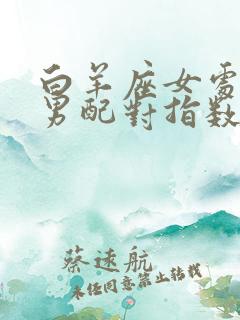 白羊座女處
男配對指數
蔡速航
未经同意禁止转载